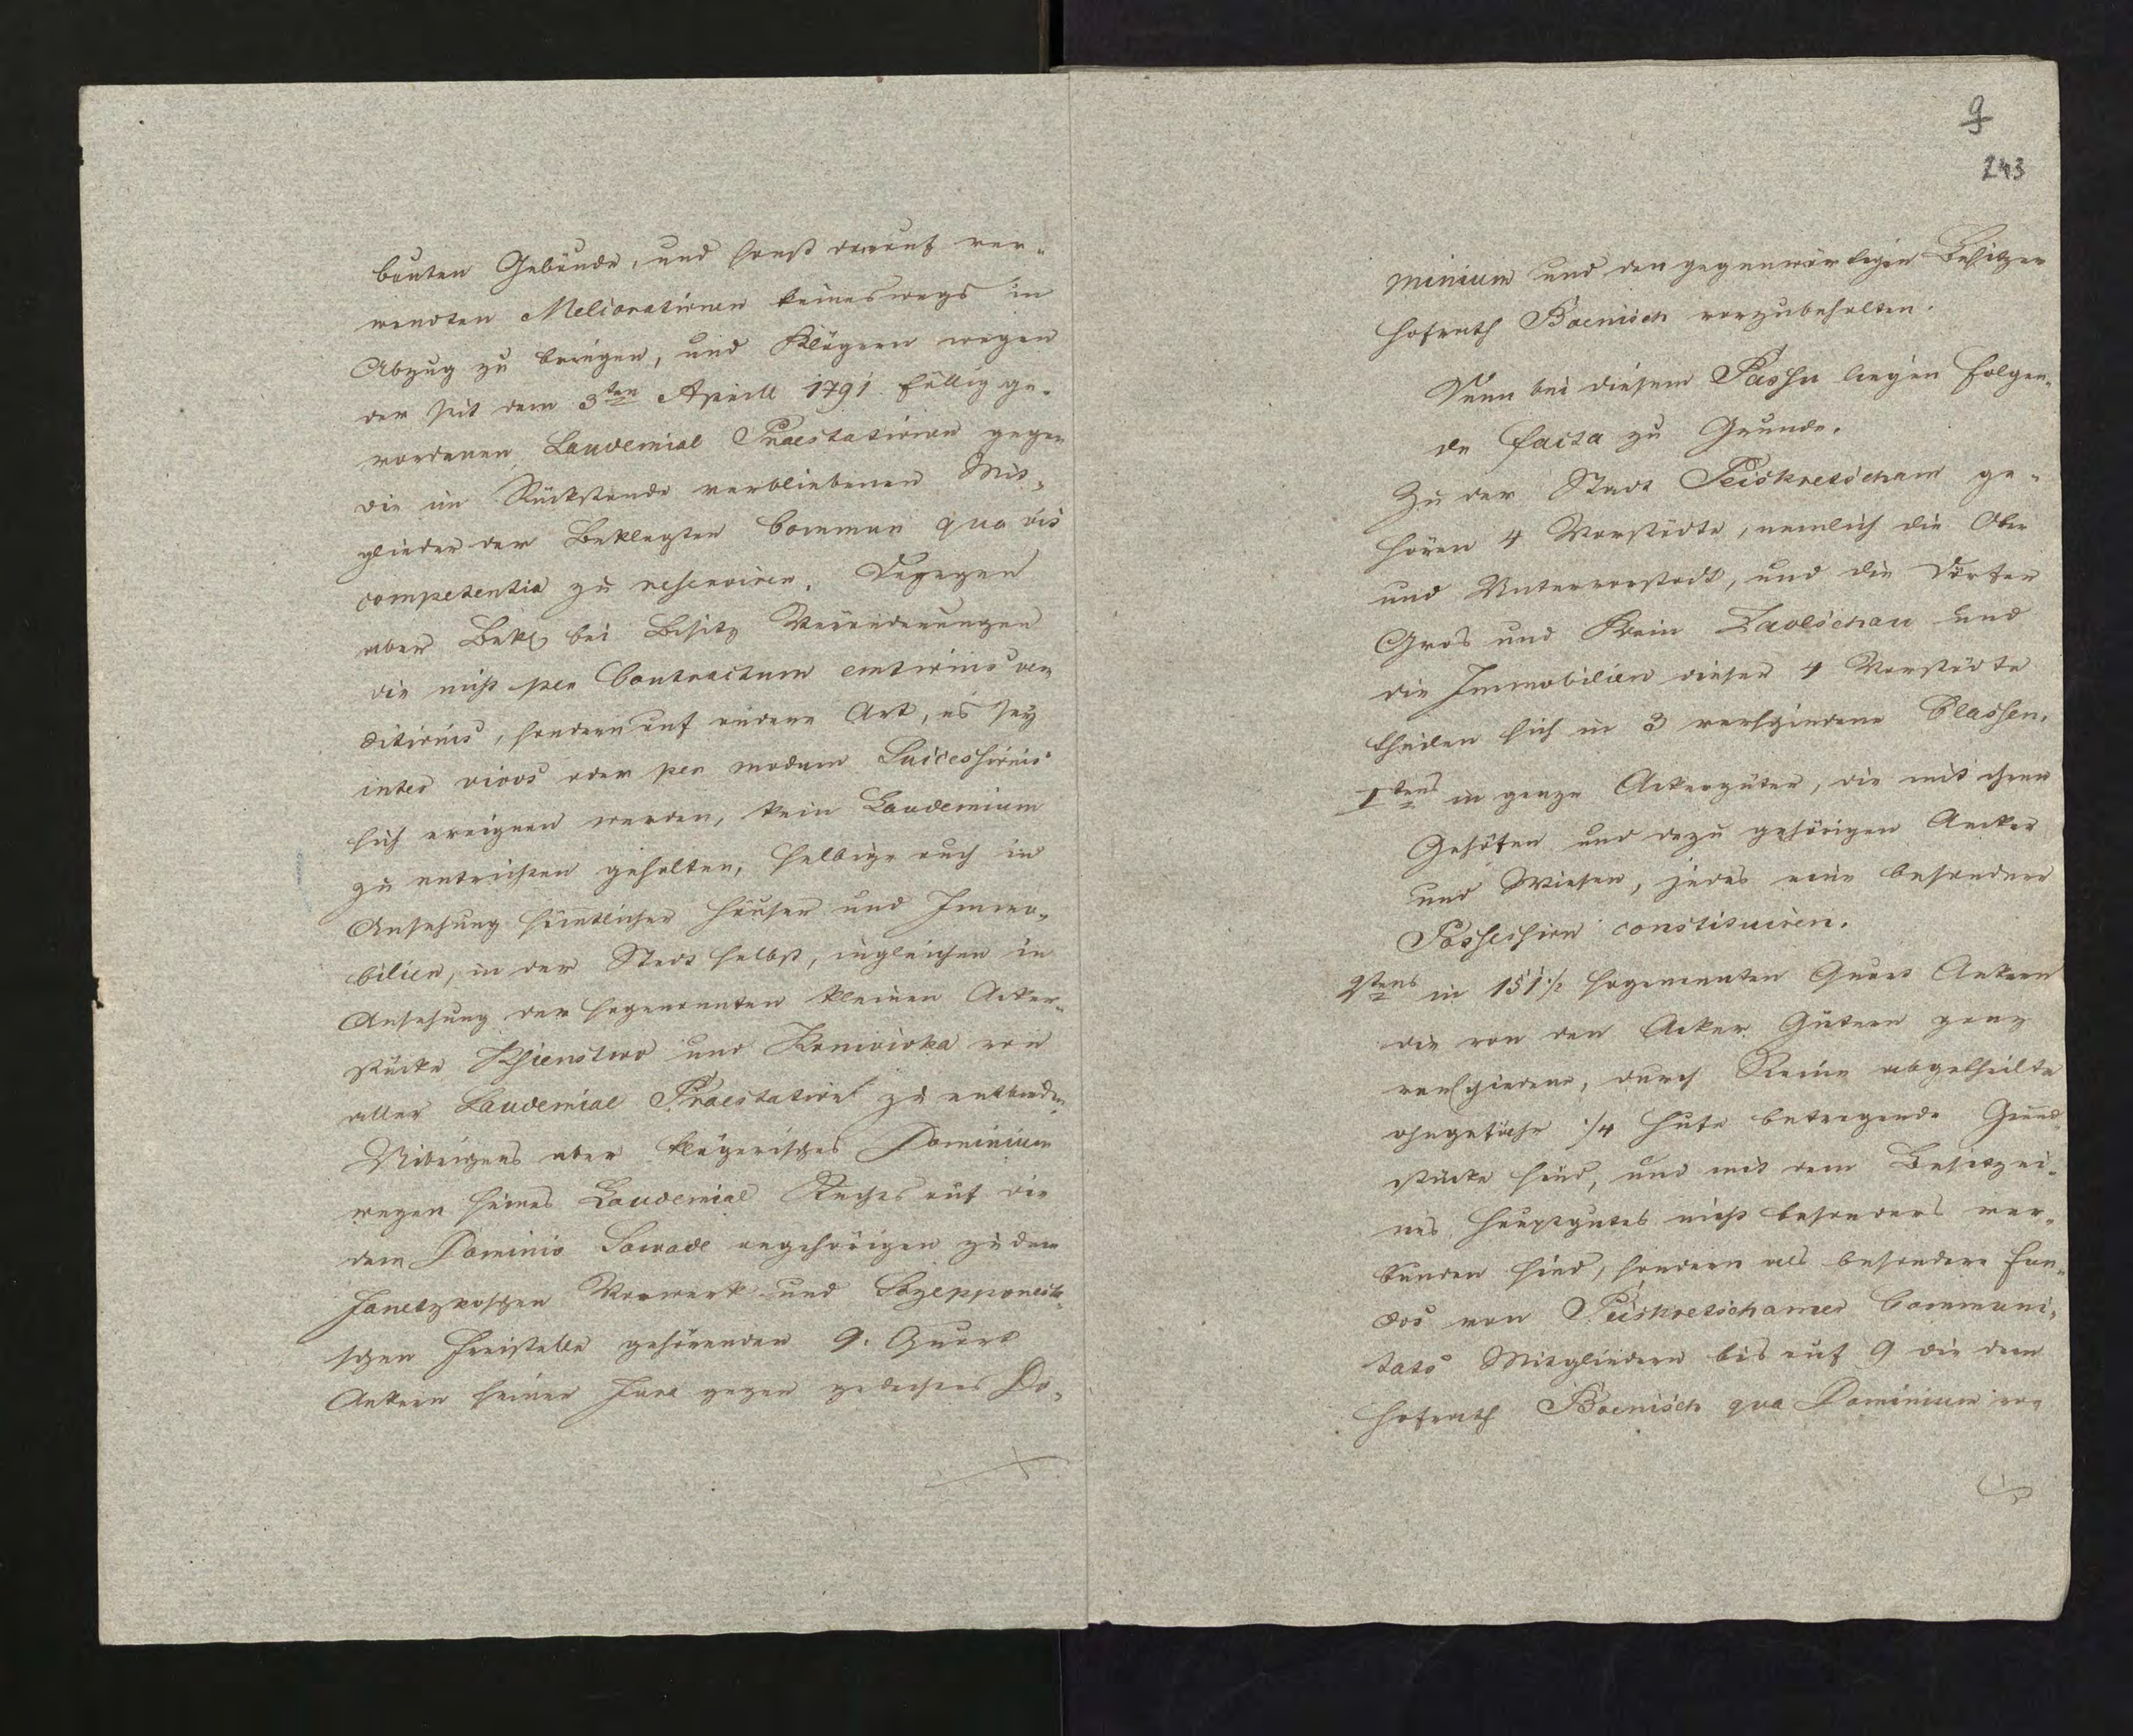 bauten Gebäude, und sonst darauf ver-
wendten Meliorationen keineswegs in
Abzug zu bringen, und Klägern wegen
der seit dem 3ten Aprill 1791 fällig ge-
wordenen Laudemial Praestationen gegen
die im Rückstande verbliebenen Mit-
glieder der Beklagten Commun qua vis
competentia zu reserviren. Dagegen
aber Bekl bei Besitz Veränderungen
die nicht per Contractum emtionis ven
ditionis, sondern auf andere Art, es sey
inter vivos oder per modum Successionis
sich ereignen werden, kein Laudemium
zu entrichten gehalten, selbige auch in
Ansehung sämtlicher Häuser und Immo-
bilien, in der Stadt selbst, ingleichen in
Ansehung der sogenannten kleinen Acker-
stücke Kszienstwo und Koniowka von
aller Laudemial Praestation zu entbinden
Uibrigens aber klägerisches Dominium
wegen seines Laudemial Rechts auf die
dem Dominio Sowade angehörigen zu dem
Janetzkoschen Vorwerk und Sczepponeck-
schen Freistelle gehörenden 9. Quart
Ackern seiner Jura gegen gedachtes Do-
9
243
minium und den gegenwärtigen Besitzer
Hofrath Boenisch vorzubehalten.
Denn bei diesem Passu liegen folgen-
de facta zu Grunde.
Zu der Stadt Peiskretscham ge-
hören 4 Vorstädte, nemlich die Ober
und Untervorstadt, und die Dörfer
Gros und Klein Zaolschau und
die Immobilien dieser 4 Vorstädte
theilen sich in 3 verschiedene Classen.
1tens in ganze Ackergüter, die mit ihren
Gehöften und dazu gehörigen Aecker
und Wiesen, jedes eine besondere
Possession constituiren.
2tens in 151½ sogenannten Quart Ackern
die von den Acker Gütern ganz
verschiedene, durch Reine abgetheilte
ohngefähr ¼ Hufe betragende Grund-
stücke sind, und mit dem Besitz ei-
nes Hauptgutes nicht besonders ver-
bunden sind, sondern als besondere fun-
dos von Peiskretschamer Communi-
tats Mitgliedern bis auf 9 die dem
Hofrath Boenisch qua Dominium